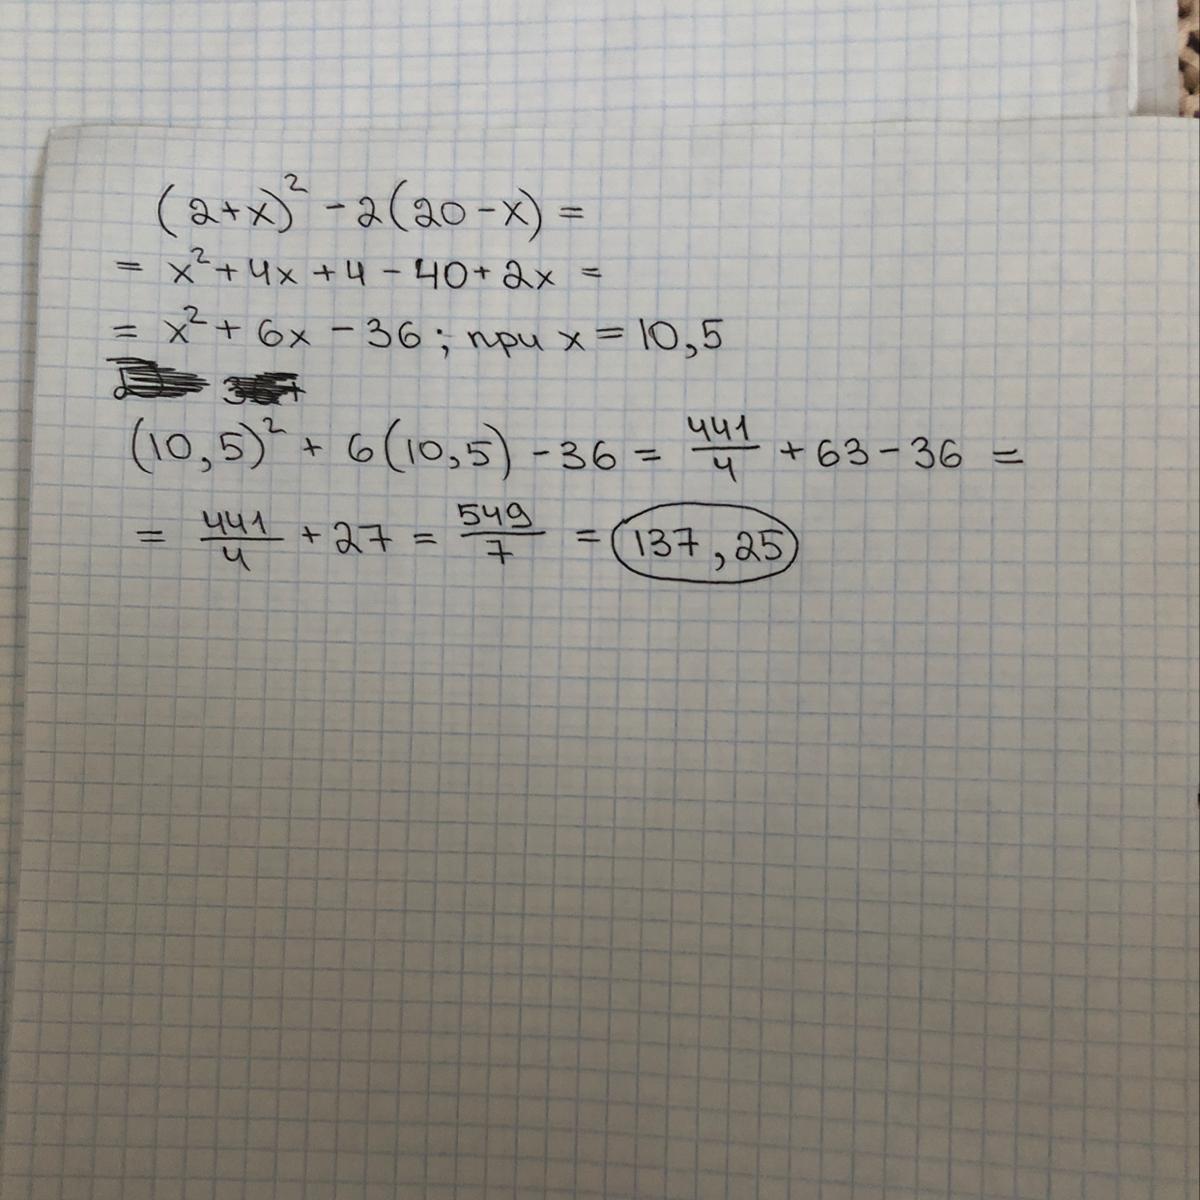 (2+x)² - 2(20-x) =
= x² + 4x + 4 - 40 + 2x =
= x² + 6x - 36 ; при x = 10,5
(10,5)² + 6(10,5) - 36 = 441/4 + 63 - 36 =
= 441/4 + 27 = 549/7 = 137,25